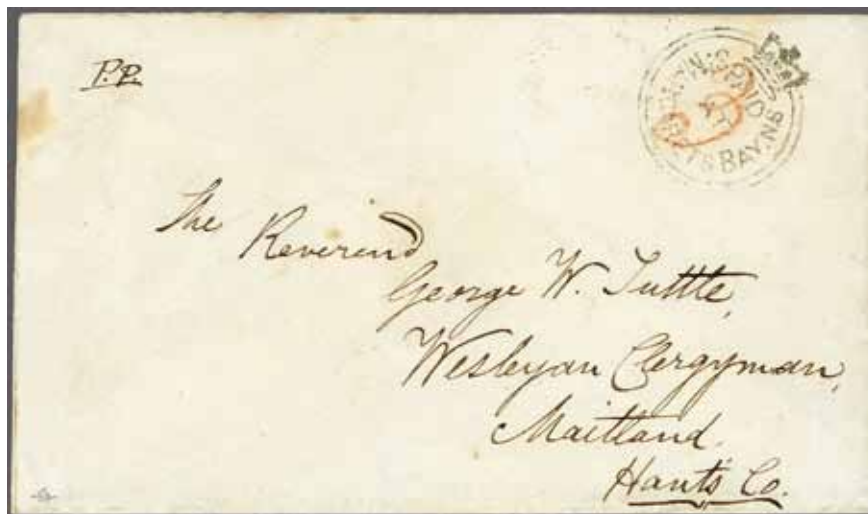 P.P.
PAID
AT
BAY.N.S
3
The
Reverend
George W. Tuttle,
Wesleyan Clergyman,
Maitland.
Hants Co.